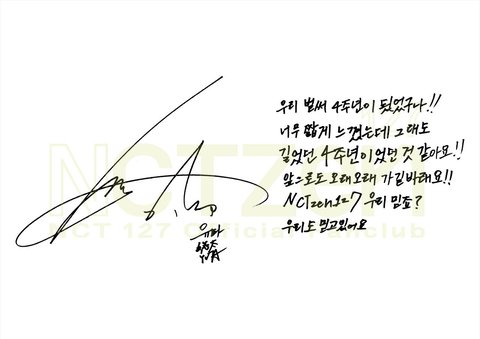 우리 벌써 4주년이 됬었구나!!
너무 짧게 느꼈는데 그래도
길었던 4주년이었던 것 같아요!!
앞으로도 오래오래 가길 바래요!!
NCTzen127 우리 믿죠?
우리도 믿고있어요
유타
NCTZEN
NCT 127 Official Fanclub